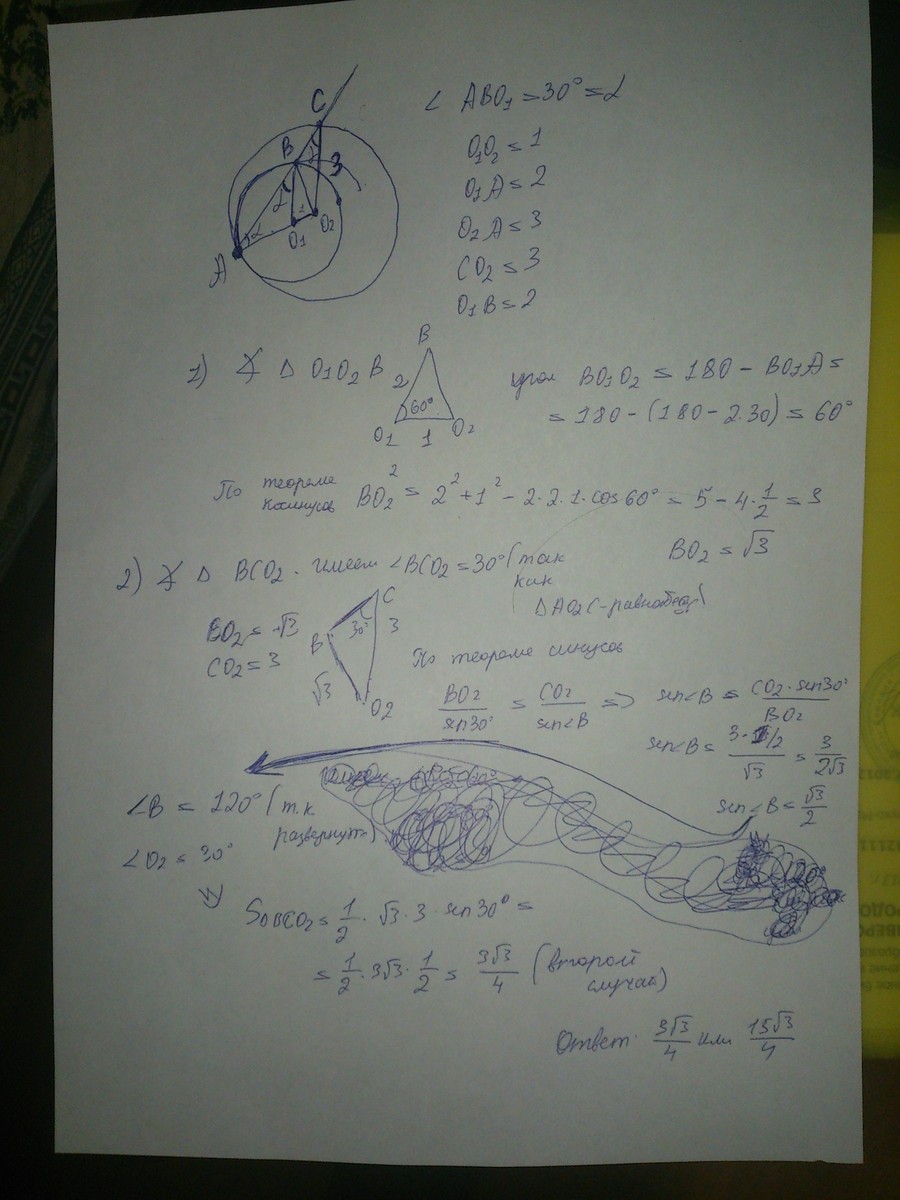 ∠ ABO₁ = 30° = α
O₁O₂ = 1
O₁A = 2
O₂A = 3
CO₂ = 3
O₁B = 2
C
B
3
α
α
1
O₁
O₂
A
1) ∢ Δ O₁O₂B
B
2
60°
O₁
1
O₂
угол BO₁O₂ = 180 - BO₁A =
= 180 - (180 - 2·30) = 60°
По теореме косинусов BO₂² = 2² + 1² - 2·2·1·cos60° = 5 - 4·1/2 = 3
BO₂ = √3
2) ∢ Δ BCO₂. имеем ∠BCO₂ = 30° (так
как
ΔAO₂C - равнобед)
BO₂ = √3
CO₂ = 3
C
B
30°
3
√3
O₂
По теореме синусов
BO₂/sin30° = CO₂/sin∠B => sin∠B = CO₂·sin30°/BO₂
sin∠B = 3·1/2/√3 = 3/2√3
sin∠B = √3/2
∠B = 120° (т.к.
развернут)
∠O₂ = 30°
⇓
SΔBCO₂ = 1/2 · √3 · 3 · sin30° =
= 1/2 · 3√3 · 1/2 = 3√3/4 (второй
случай)
Ответ: 3√3/4 или 15√3/4